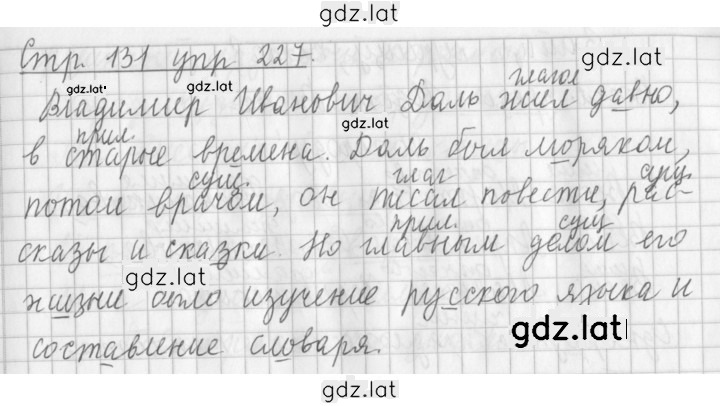 gdz.lat
Стр. 131 упр 227.
gdz.lat
gdz.lat
gdz.lat
глагол
Владимир Иванович Даль жил давно,
прил.
gdz.lat
в старые времена. Даль был моряком,
сущ. глаг сущ.
потом врачом, он писал повести, рас-
прил. сущ
сказы и сказки. Но главным делом его
gdz.lat
жизни было изучение русского языка и
gdz.lat
составление словаря.
gdz.lat